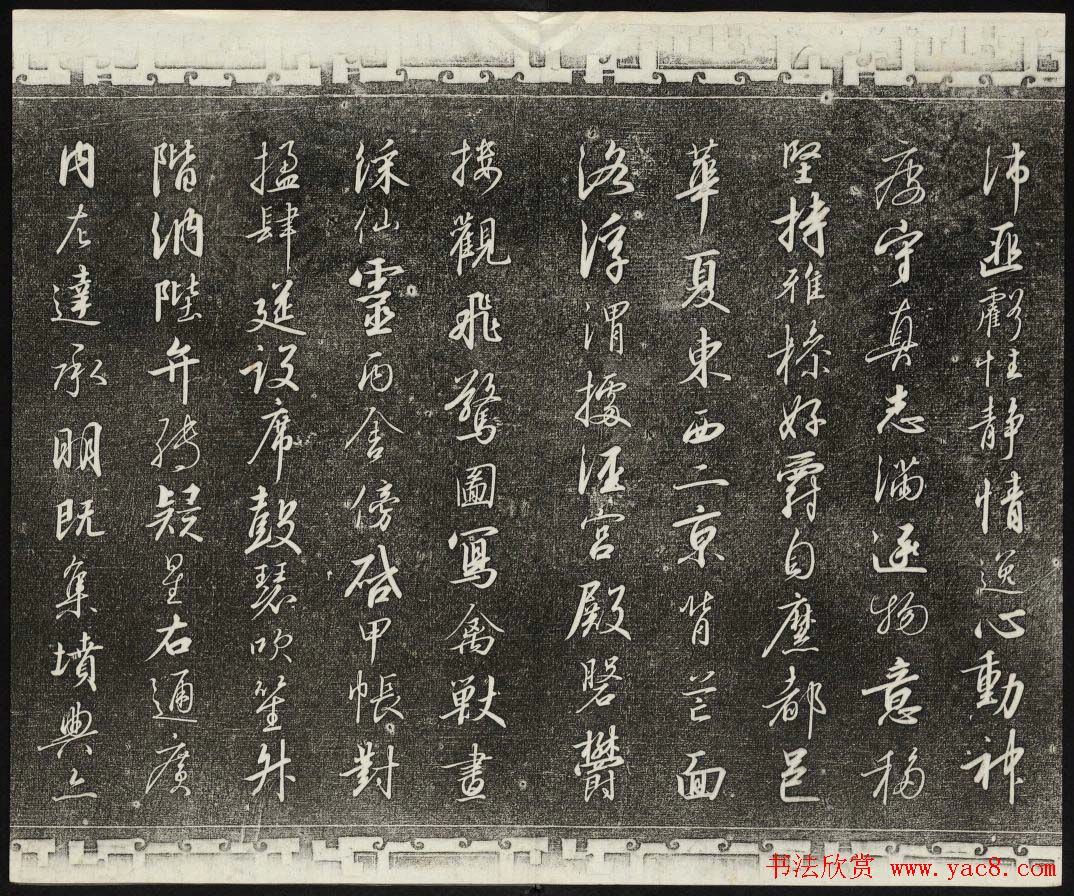 沛匪虧性静情逸心動神
疲守真志滿逐物意移
堅持雅操好爵自縻都邑
華夏東西二京背芒面
洛浮渭據涇宮殿磐鬱
樓觀飛驚圖寫禽獸畫
綵仙靈丙舍傍啓甲帳對
楹肆筵設席鼓瑟吹笙升
階納陛弁轉疑星右通廣
内左達承明既集墳典亦
书法欣赏 www.yac8.com